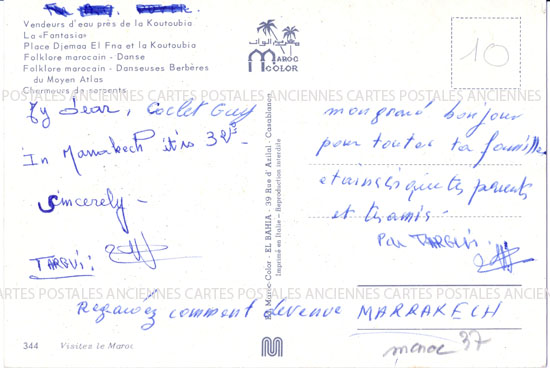 Vendeurs d'eau près de la Koutoubia
La «Fantasia»
Place Djemaa El Fna et la Koutoubia
Folklore marocain - Danse
Folklore marocain - Danseuses Berbères
du Moyen Atlas
Charmeurs de serpents
MAROC
COLOR
10
CARTES POSTALES ANCIENNES CARTES POSTALES ANCIENNES CARTES POSTALES ANCIENNES
My dear, Guy
In Marrakech it's 32
Sincerely -
TARGUI:
mon grand bonjour
pour toute ta famille
et ainsi que tes parents
et tes amis -
Par TARGUI.
Maroc-Color - EL BAHIA - 39 Rue d'Asilal - Casablanca
Imprimé en Italie - Reproduction interdite
CARTES POSTALES ANCIENNES CARTES POSTALES ANCIENNES CARTES POSTALES ANCIENNES
Regardez comment devenue MARRAKECH
344 Visitez le Maroc
maroc 37